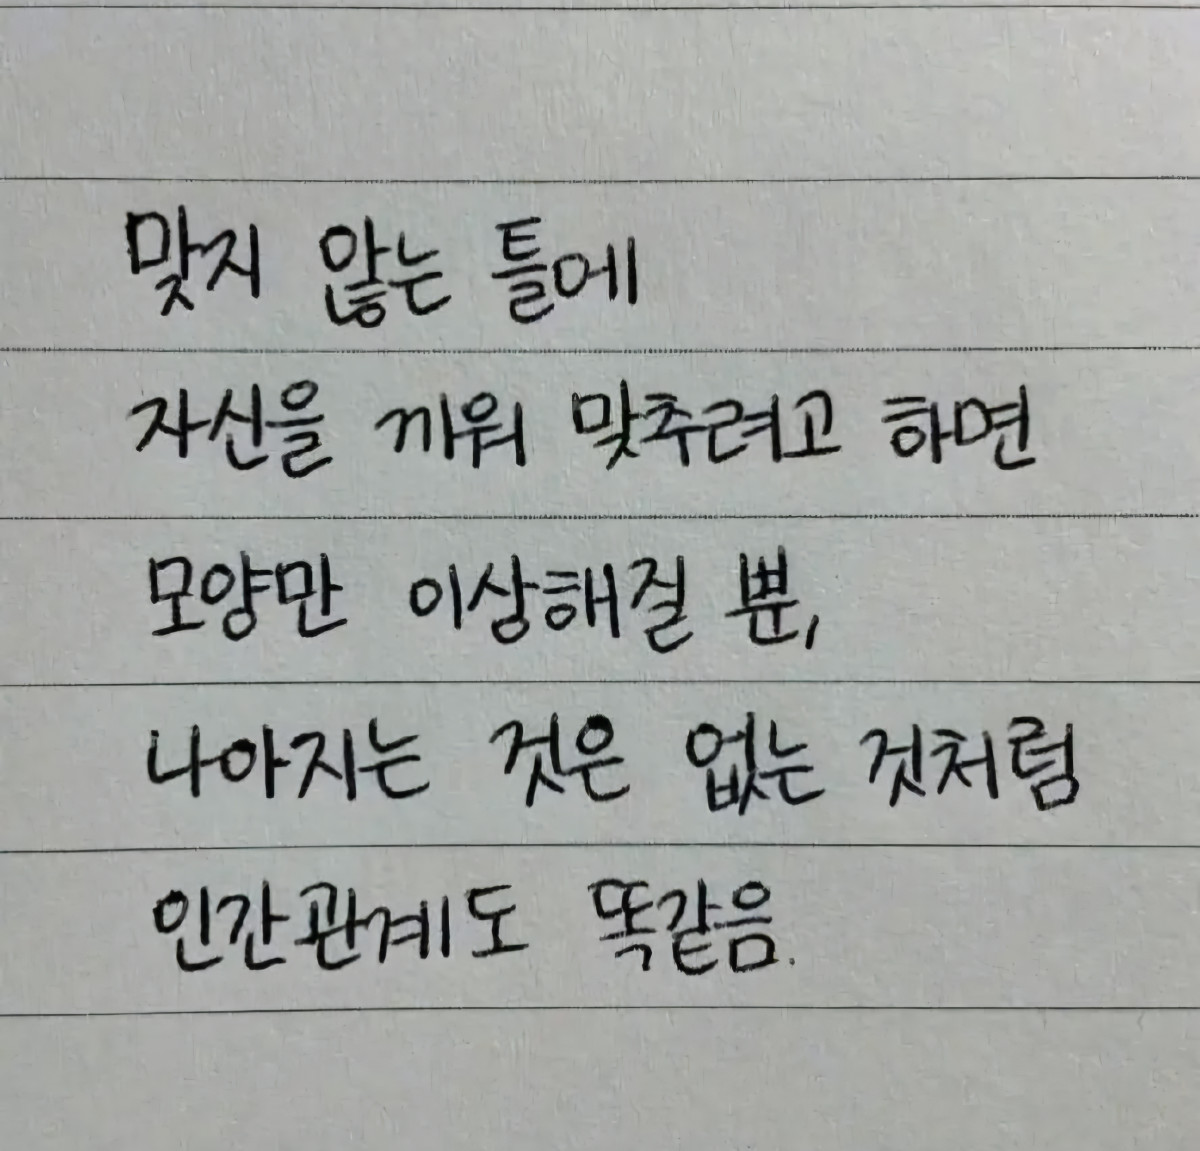 맞지 않는 틀에
자신을 끼워 맞추려고 하면
모양만 이상해질 뿐,
나아지는 것은 없는 것처럼
인간관계도 똑같음.